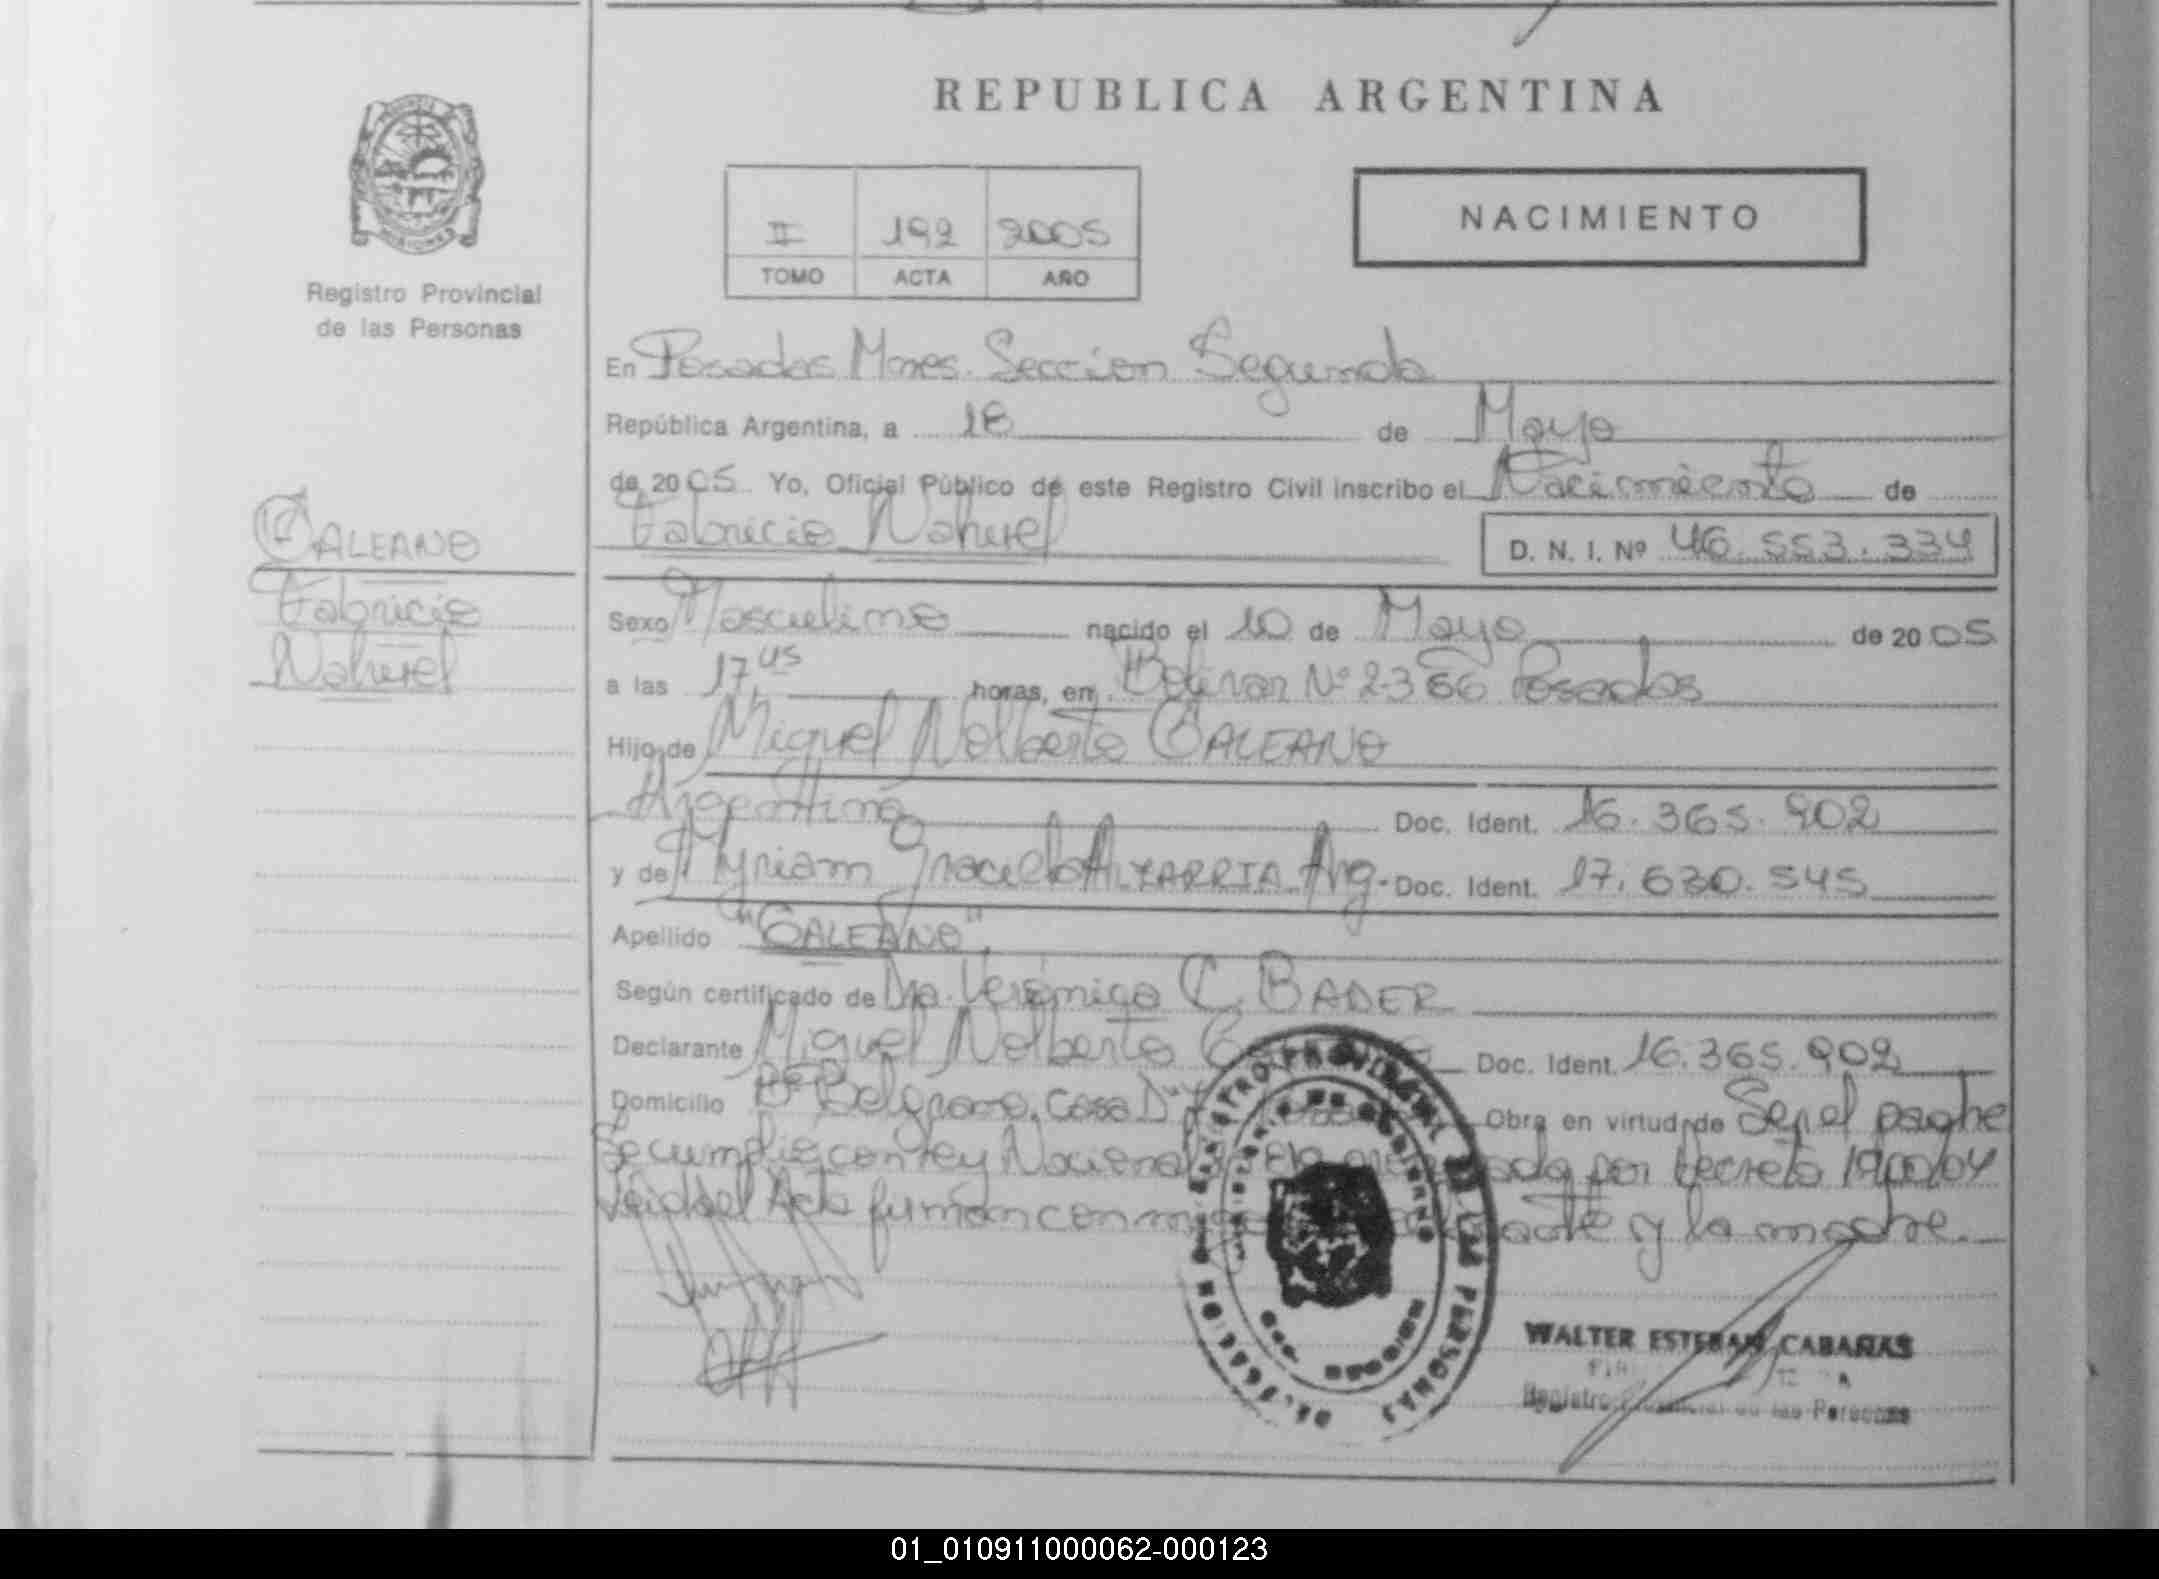 REPUBLICA ARGENTINA
II 192 2005
TOMO ACTA AÑO
NACIMIENTO
Registro Provincial
de las Personas
En Posadas Mnes. Seccion Segunda
República Argentina, a 18 de Mayo
de 2005 Yo, Oficial Público de este Registro Civil inscribo el Nacimiento de
Fabricio Nahuel
D. N. I. Nº 46.553.334
GALEANO
Fabricio
Nahuel
Sexo Masculino nacido el 10 de Mayo de 2005
a las 17,45 horas, en Bolivar Nº 2366 Posadas
Hijo de Miguel Nolberto GALEANO
Argentina Doc. Ident. 16.365.902
y de Myriam Graciela ALZARRIA Arg. Doc. Ident. 17.630.545
Apellido "GALEANO".
Según certificado de Dra. Verónica C. BADER
Declarante Miguel Nolberto Doc. Ident. 16.365.902
Domicilio Bº Belgrano, Casa Obra en virtud de Ser el padre
Se cumplio con Ley Nacional por Decreto 1900/04
Leida el Acta firman con y la madre.
REGISTRO PROVINCIAL DE LAS PERSONAS
WALTER ESTEBAN CABAÑAS
Registro Provincial de las Personas
01_010911000062-000123